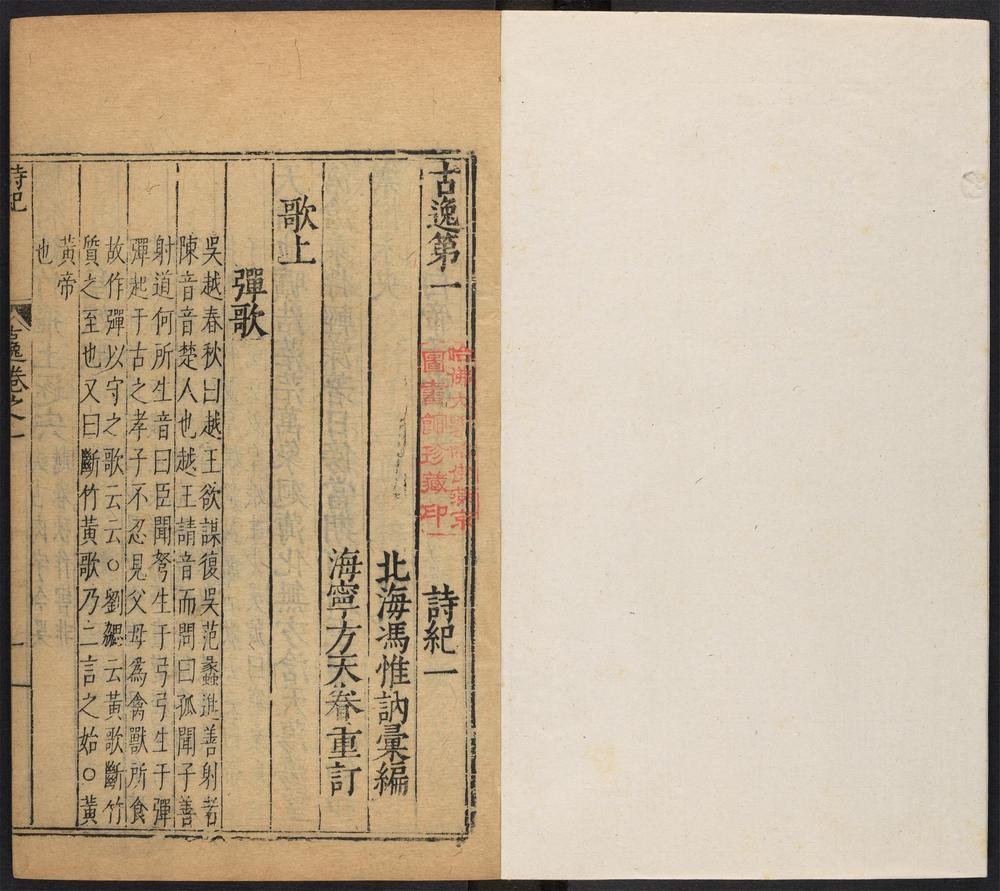 古逸第一 詩紀一
哈佛大學哈佛燕京
圖書館珍藏印
北海馮惟訥彙編
海寧方天眷重訂
歌上
彈歌
吳越春秋曰越王欲謀復吳范蠡進善射者
陳音音楚人也越王請音而問曰孤聞子善
射道何所生音曰臣聞弩生于弓弓生于彈
彈起于古之孝子不忍見父母爲禽獸所食
故作彈以守之歌云云○劉勰云黃歌斷竹
質之至也又曰斷竹黃歌乃二言之始○黃
黃帝
也
詩紀 古逸卷之一 一